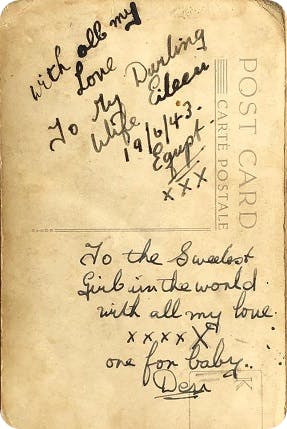 with all my
Love
To My Darling
Wife Eileen
19/6/43.
Egypt.
x x x
POST CARD
CARTE POSTALE
To the Sweetest
Girl in the world
with all my love.
x x x x X
one for baby..
Des
K